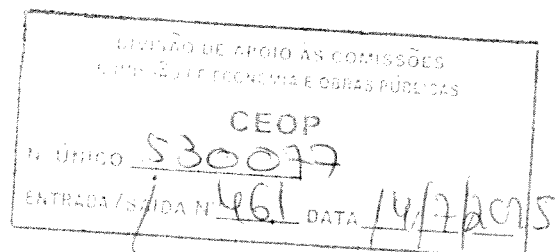 DIVISÃO DE APOIO ÀS COMISSÕES
COMISSÃO DE ECONOMIA E OBRAS PÚBLICAS
CEOP
N. ÚNICO 530077
ENTRADA/SAÍDA N. 461 DATA 14/7/2015